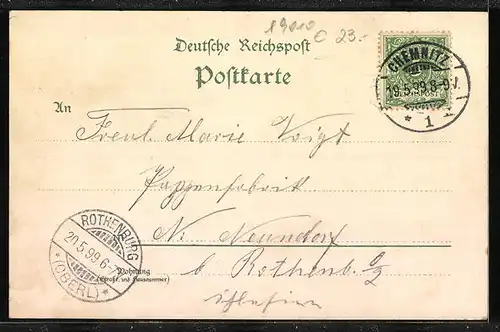 19010
C 23.-
Deutsche Reichspost
Postkarte
CHEMNITZ
19.5.99.8-9.V.
* 1 *
An
Freul. Marie Voigt
Pappenfabrik
N. Neundorf
b. Rothenb. O/L
Schlesien
Wohnung
(Straße und Hausnummer)
ROTHENBURG
20.5.99.6-7
*(OBERL.)*